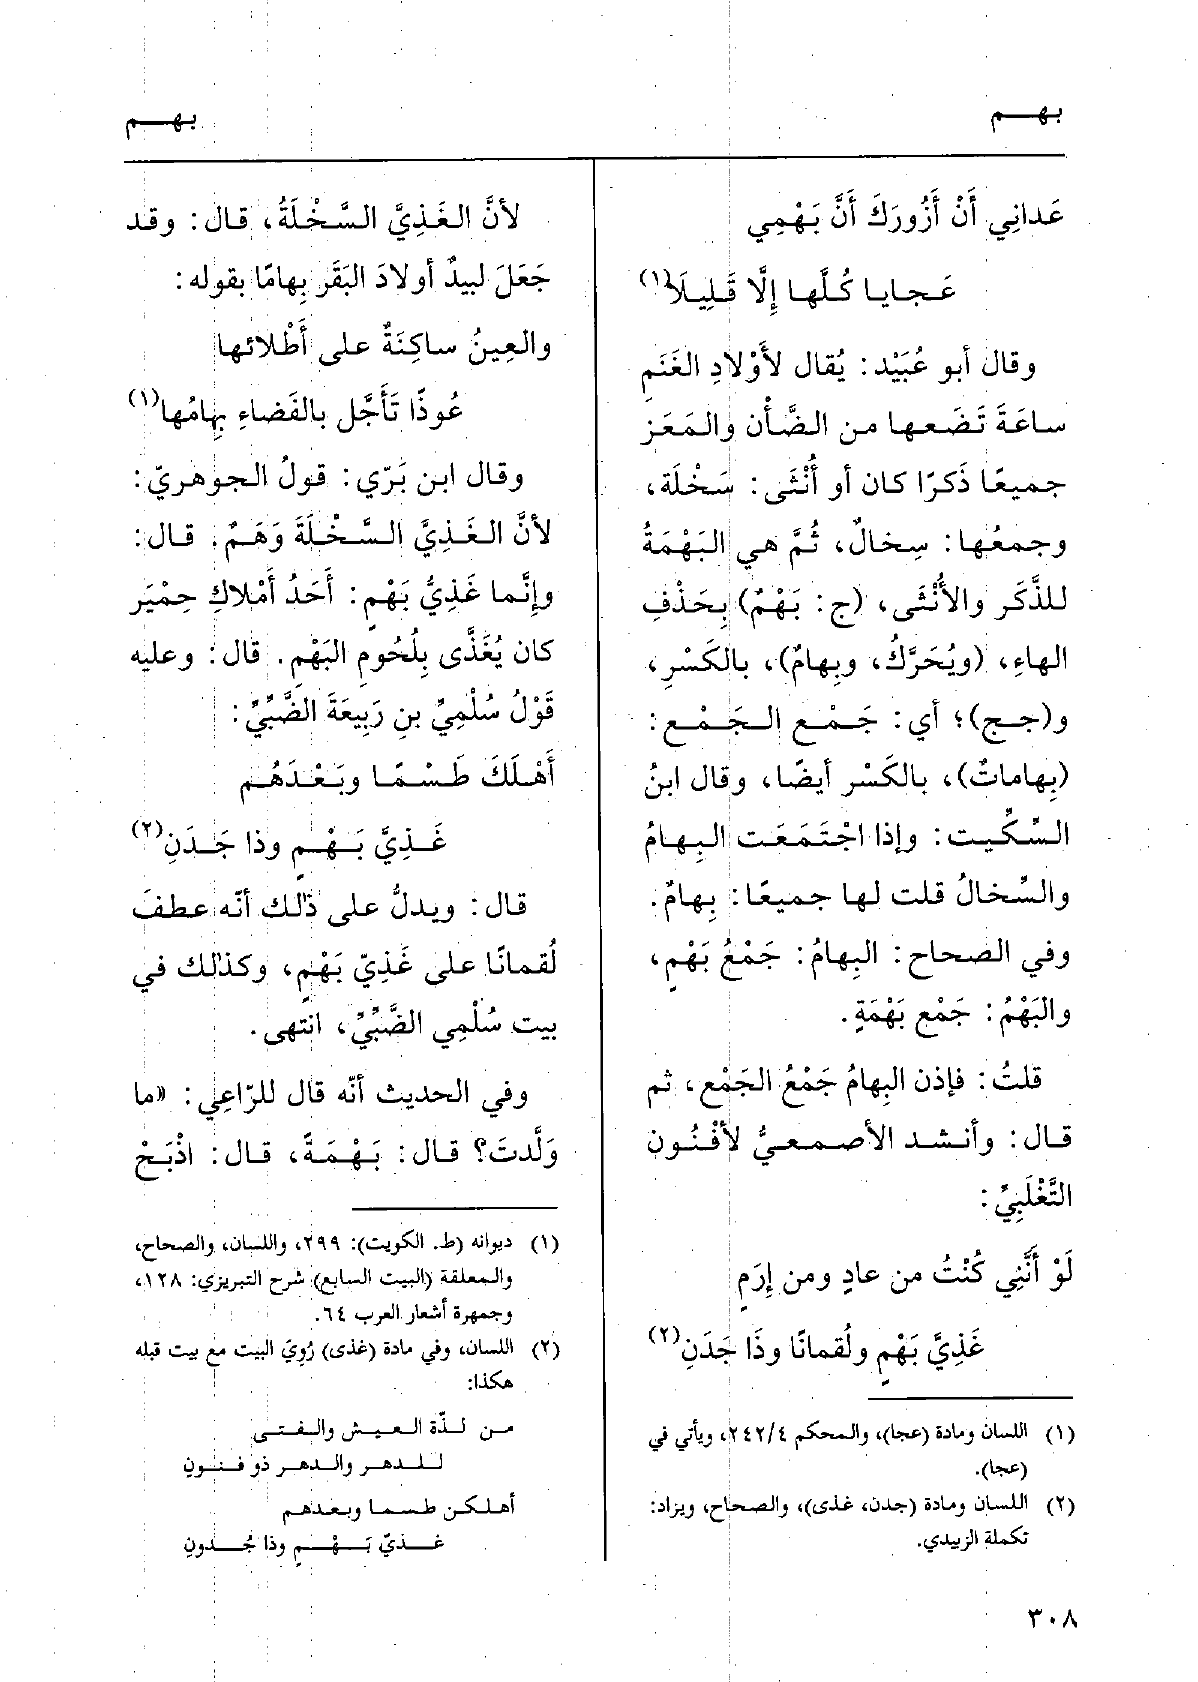 بهـــم
بهـــم
عَدانِي أَنْ أَزُورَكَ أَنَّ بَهْمِي
عَجايا كُلَّها إِلَّا قَلِيلَا(١)
وقال أبو عُبَيْد: يُقال لأَوْلادِ الغَنَمِ
ساعَةَ تَضَعها من الضَّأْن والمَعَز
جميعًا ذَكَرًا كان أو أُنْثَى: سَخْلَة،
وجمعُها: سِخالٌ، ثُمَّ هي البَهْمَةُ
للذَّكَر والأُنْثَى، (ج: بَهْمٌ) بِحَذْفِ
الهاءِ، (ويُحَرَّكُ، وبِهامٌ)، بالكَسْرِ،
و(جج)؛ أي: جَمْع الجَمْع:
(بِهاماتٌ)، بالكَسْر أيضًا، وقال ابنُ
السِّكِّيت: وإذا اجْتَمَعَت البِهامُ
والسِّخالُ قلت لها جميعًا: بِهامٌ.
وفي الصحاح: البِهامُ: جَمْعُ بَهْمٍ،
والبَهْمُ: جَمْع بَهْمَةٍ.
قلتُ: فإذن البِهامُ جَمْعُ الجَمْع، ثم
قال: وأنشد الأصمعيُّ لأُفْنُون
التَّغْلَبِيِّ:
لَوْ أَنَّنِي كُنْتُ من عادٍ ومن إِرَمٍ
غَذِيَّ بَهْمٍ ولُقمانًا وذَا جَدَنِ(٢)
(١) اللسان ومادة (عجا)، والمحكم ٢٤٢/٤، ويأتي في
(عجا).
(٢) اللسان ومادة (جدن، غذى)، والصحاح، ويزاد:
تكملة الزبيدي.
لأنَّ الغَذِيَّ السَّخْلَةُ، قال: وقد
جَعَلَ لبيدٌ أولادَ البَقَر بِهامًا بقوله:
والعِينُ ساكِنَةٌ على أَطْلائها
عُوذًا تَأَجَّل بالفَضاءِ بِهامُها(١)
وقال ابن بَرّي: قولُ الجوهريّ:
لأنَّ الغَذِيَّ السَّخْلَةَ وَهَمٌ. قال:
وإنَّما غَذِيُّ بَهْمٍ: أَحَدُ أَمْلاكِ حِمْيَر
كان يُغَذَّى بِلُحُومِ البَهْمِ. قال: وعليه
قَوْلُ سُلْمِيِّ بنِ رَبِيعَةَ الضَّبِّيِّ:
أَهْلَكَ طَسْمًا وبَعْدَهُم
غَذِيَّ بَهْمٍ وذا جَدَنِ(٢)
قال: ويدلُّ على ذٰلك أنّه عطفَ
لُقمانًا على غَذِيّ بَهْمٍ، وكذلك في
بيت سُلْمِي الضَّبِّيِّ، انتهى.
وفي الحديث أنّه قال للرّاعِي: «ما
وَلَّدتَ؟ قال: بَهْمَةً، قال: اذْبَحْ
(١) ديوانه (ط. الكويت): ٢٩٩، واللسان، والصحاح،
والمعلقة (البيت السابع) شرح التبريزي: ١٢٨،
وجمهرة أشعار العرب ٦٤.
(٢) اللسان، وفي مادة (غذى) رُوِيَ البيت مع بيت قبله
هكذا:
من لذّة العيش والفتى
للدهر والدهر ذو فنونِ
أهلكن طسما وبعدهم
غذيّ بَهْمٍ وذا جُدونِ
٣٠٨